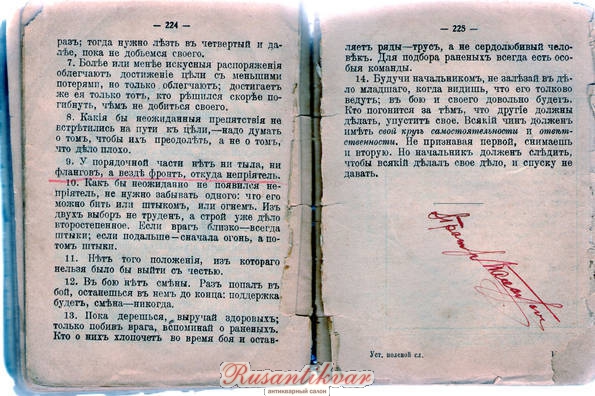 — 224 —
разъ; тогда нужно лѣзть въ четвертый и да-
лѣе, пока не добьемся своего.
7. Болѣе или менѣе искусныя распоряженія
облегчаютъ достиженіе цѣли съ меньшими
потерями, но только облегчаютъ; достигаетъ
же ея только тотъ, кто рѣшился скорѣе по-
гибнуть, чѣмъ не добиться своего.
8. Какія бы неожиданныя препятствія не
встрѣтились на пути къ цѣли,—надо думать
о томъ, чтобы ихъ преодолѣть, а не о томъ,
что дѣло плохо.
9. У порядочной части нѣтъ ни тыла, ни
фланговъ, а вездѣ фронтъ, откуда непріятель.
10. Какъ бы неожиданно не появился не-
пріятель, не нужно забывать одного: что его
можно бить или штыкомъ, или огнемъ. Изъ
двухъ выборъ не труденъ, а строй уже дѣло
второстепенное. Если врагъ близко—всегда
штыки; если подальше—сначала огонь, а по-
томъ штыки.
11. Нѣтъ того положенія, изъ котораго
нельзя было бы выйти съ честью.
12. Въ бою нѣтъ смѣны. Разъ попалъ въ
бой, останешься въ немъ до конца: поддержка
будетъ, смѣна—никогда.
13. Пока дерешься, выручай здоровыхъ;
только побивъ врага, вспоминай о раненыхъ.
Кто о нихъ хлопочетъ во время боя и остав-
— 225 —
ляетъ ряды—трусъ, а не сердолюбивый чело-
вѣкъ. Для подбора раненыхъ всегда есть осо-
быя команды.
14. Будучи начальникомъ, не залѣзай въ дѣ-
ло младшаго, когда видишь, что его толково
ведутъ; въ бою и своего довольно будетъ.
Кто погонится за тѣмъ, что другіе должны
дѣлать, упуститъ свое. Всякій чинъ долженъ
имѣть свой кругъ самостоятельности и отвѣт-
ственности. Не признавая первой, снимаешь
и вторую. Но начальникъ долженъ слѣдить,
чтобы всякій дѣлалъ свое дѣло, и спуску не
давать.
Уст. полевой сл.
Rusantikvar
антикварный салон